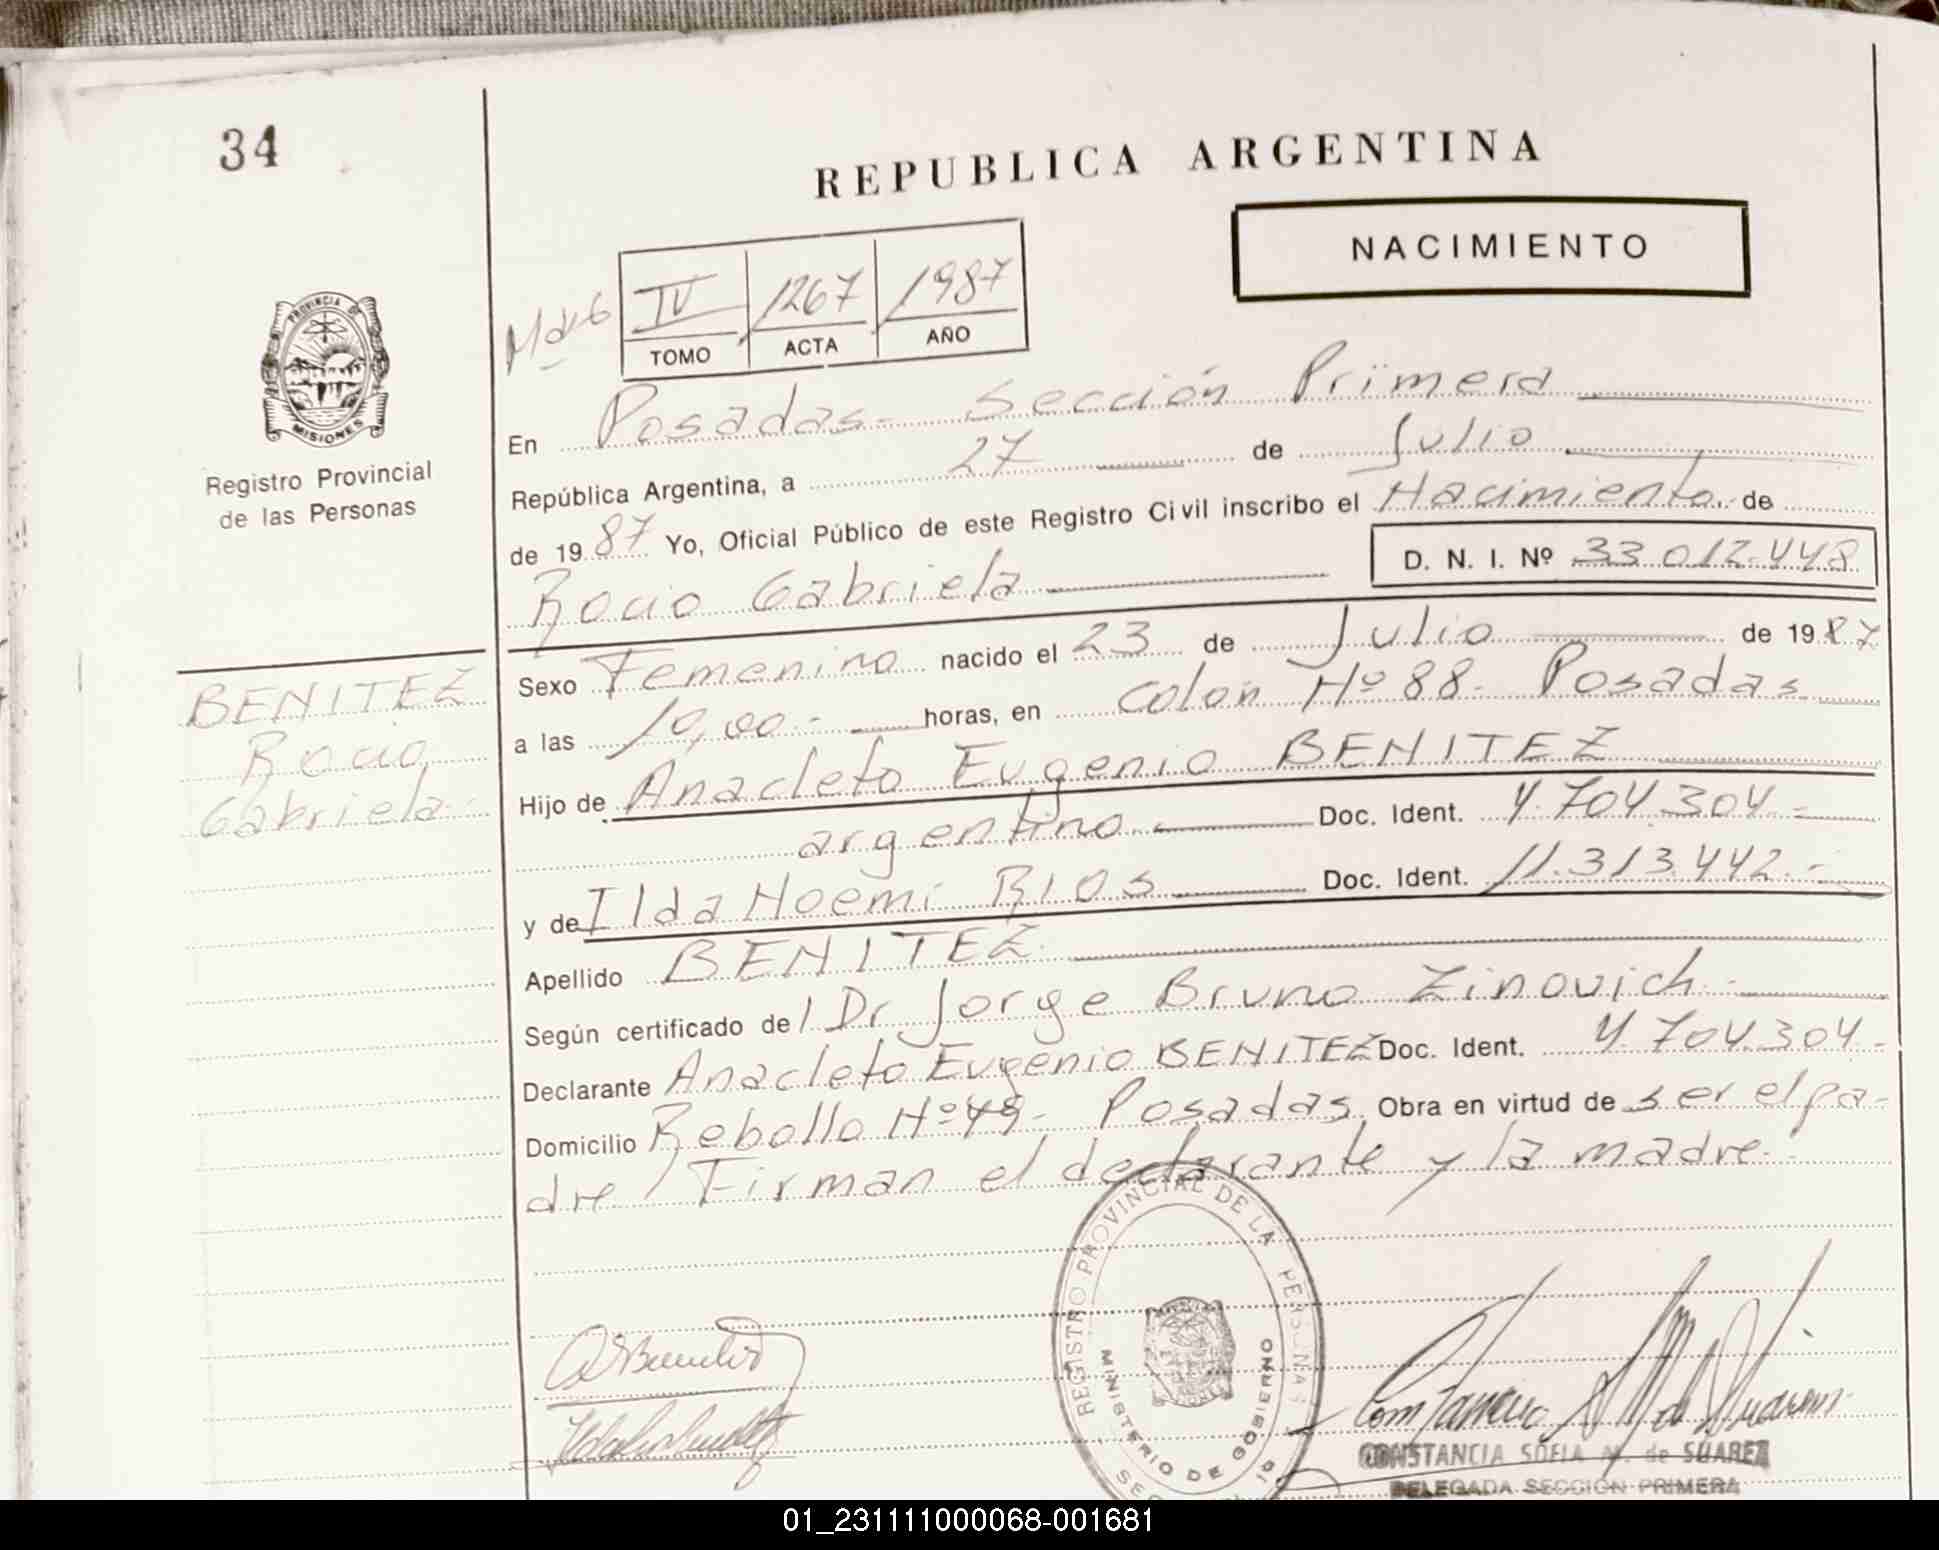 34
REPUBLICA ARGENTINA
NACIMIENTO
IV 1267 1987
TOMO ACTA AÑO
PROVINCIA DE
MISIONES
Registro Provincial
de las Personas
En Posadas- Sección Primera
República Argentina, a 27 de Julio
de 1987 Yo, Oficial Público de este Registro Civil inscribo el Nacimiento de
D. N. I. Nº 33.012.448
Rocio Gabriela
Sexo Femenino nacido el 23 de Julio de 1987
a las 10,00.- horas, en Colón Nº 88- Posadas
Hijo de Anacleto Eugenio BENITEZ
argentino Doc. Ident. 4.704.304.-
y de Ilda Noemi RIOS Doc. Ident. 11.313.442.-
Apellido BENITEZ
Según certificado del Dr Jorge Bruno Zinovich
Declarante Anacleto Eugenio BENITEZ Doc. Ident. 4.704.304.-
Domicilio Rebollo Nº 49- Posadas Obra en virtud de ser el pa-
dre/ Firman el declarante y la madre.
BENITEZ
Rocio
Gabriela
REGISTRO PROVINCIAL DE LA PERSONAS
MINISTERIO DE GOBIERNO
CONSTANCIA SOFIA M. de SUAREZ
DELEGADA SECCION PRIMERA
01_231111000068-001681